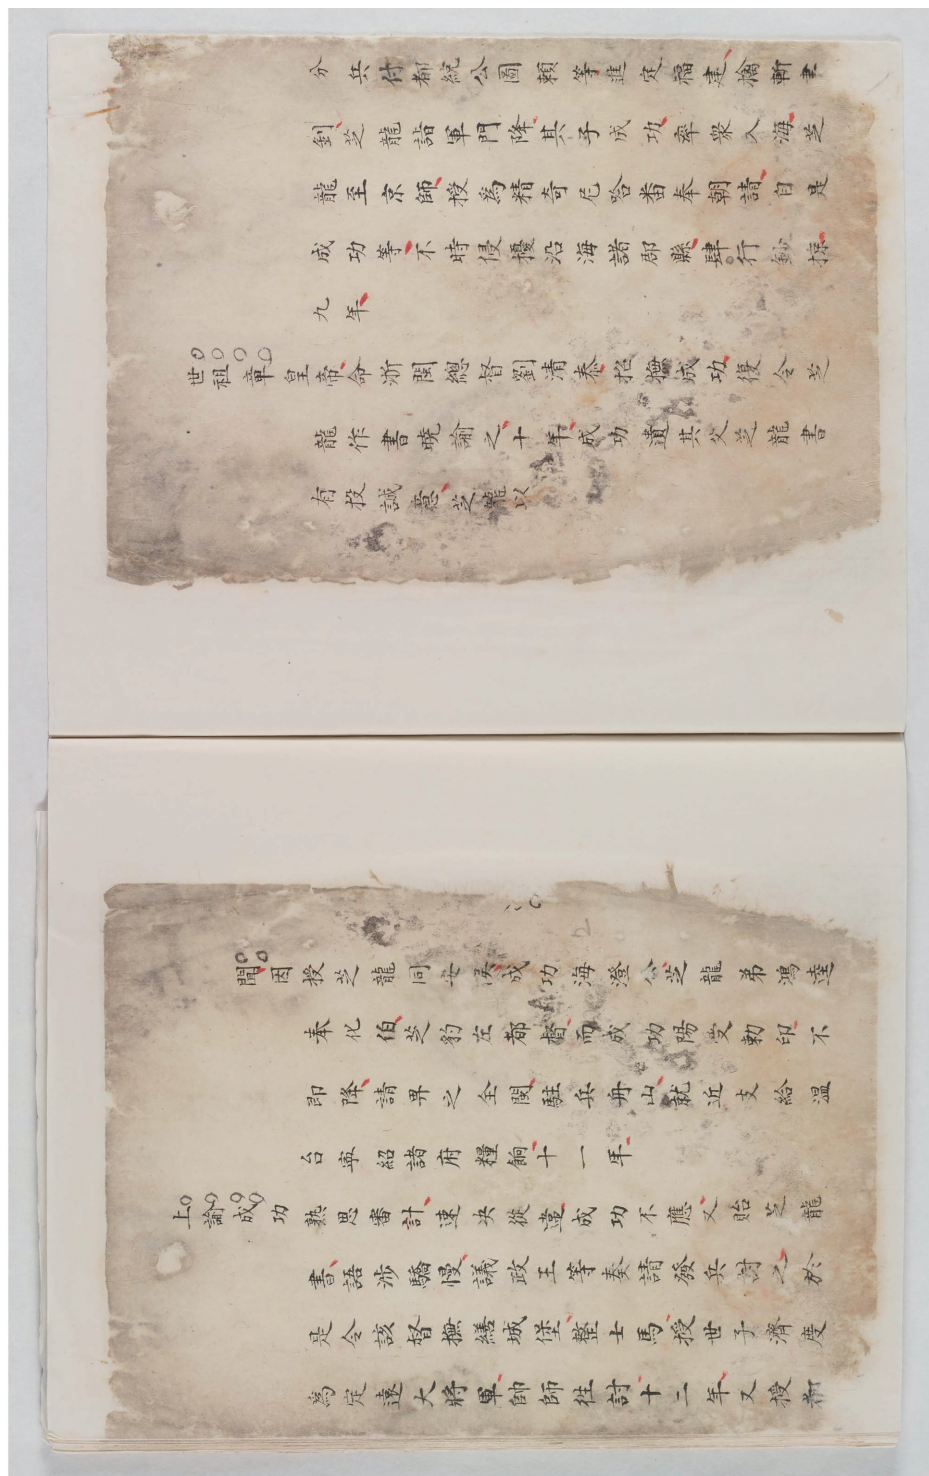 分兵付都統公圖賴等進定福建擒斬聿
釗芝龍詣軍門降其子成功率衆入海芝
龍至京師授為精奇尼哈番奉朝請自是
成功等不時侵擾沿海諸郡縣肆行鈔掠
九年
世祖章皇帝命浙閩總督劉清泰招撫成功復令芝
龍作書曉諭之十年成功遺其父芝龍書
有投誠意芝龍以
聞因授芝龍同安侯成功海澄公芝龍弟鴻逵
奉化伯芝豹左都督而成功陽受勅印不
即降請畀之全閩駐兵舟山就近支給溫
台寧紹諸府糧餉十一年
上諭成功熟思審計速決從違成功不應又貽芝龍
書語涉驕慢議政王等奏請發兵討之於
是令該督撫繕城堡整士馬授世子濟度
為定遠大將軍帥師往討十二年又授